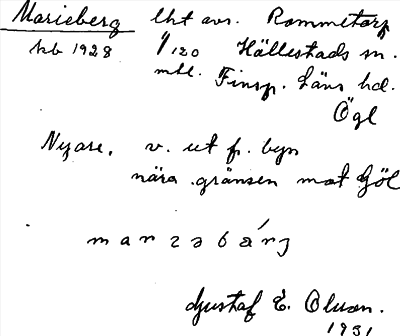 Marieberg lht avs. Rommetorp
kb 1928 1/120 Hällestads sn.
mtl. Finsp. läns hd.
Ögl
Nyare. v. ut fr. byn
nära gränsen mot Göl
marzabárj
Gustaf E. Olsson.
1931